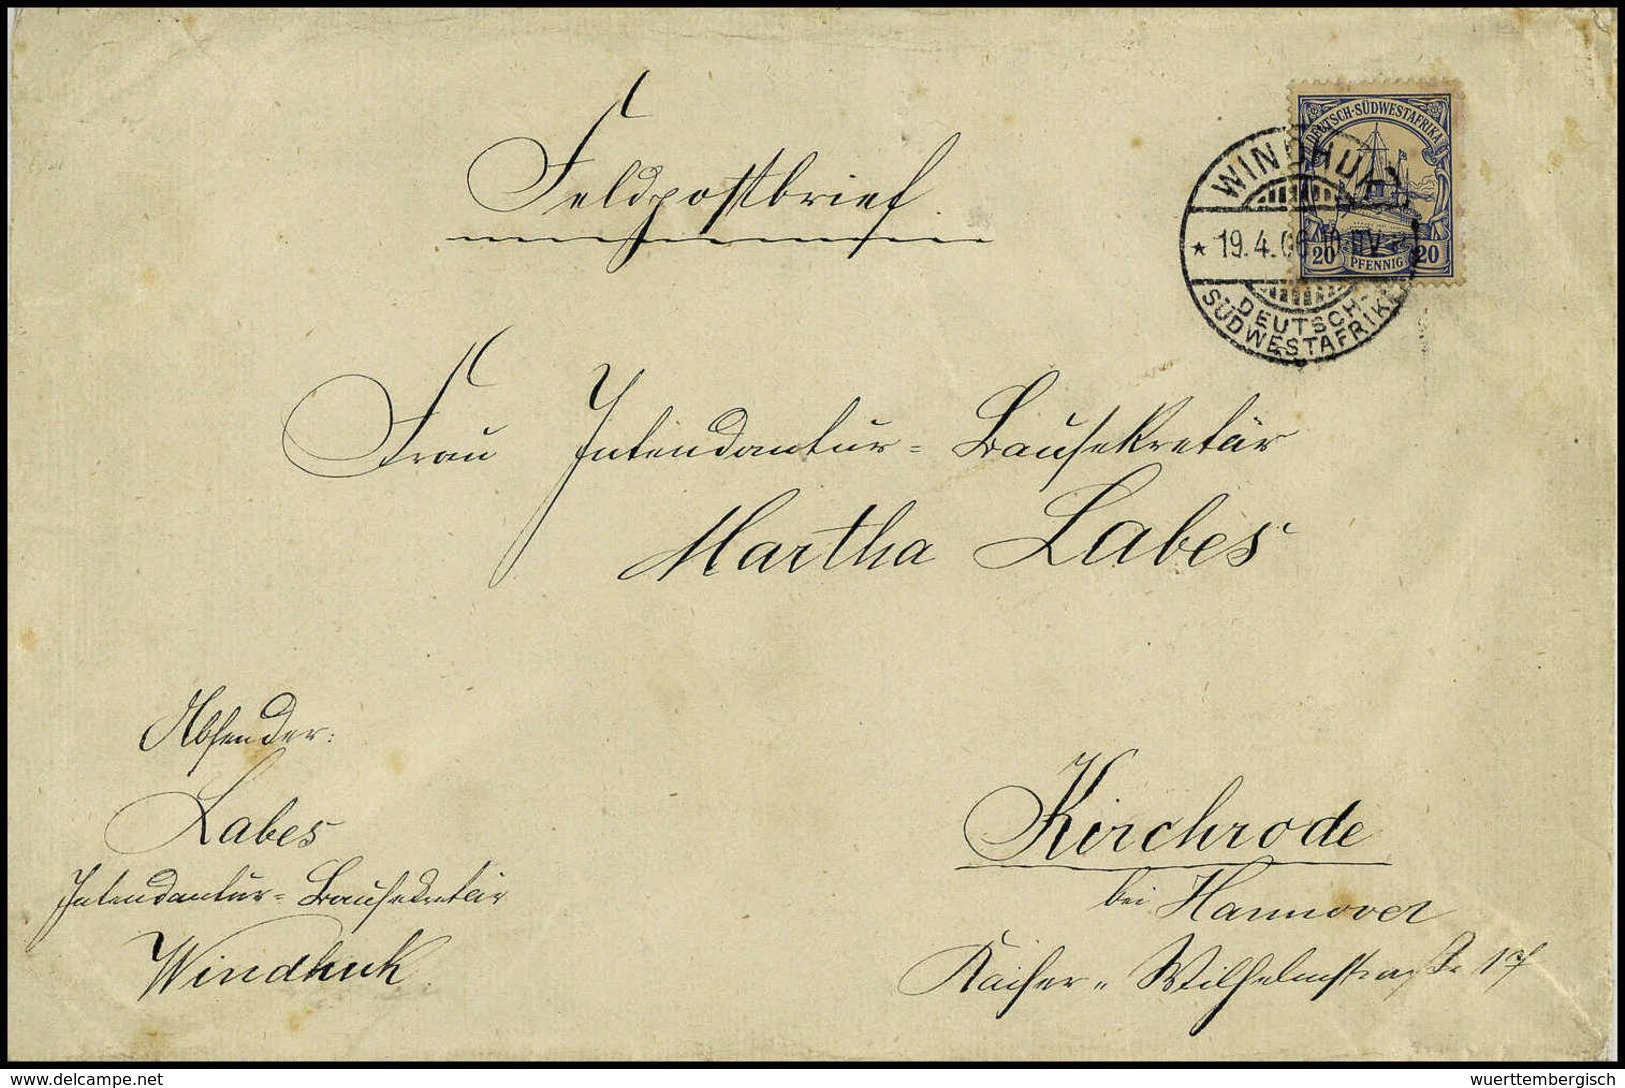 Feldpostbrief.
DEUTSCH-SÜDWESTAFRIKA
20 PFENNIG 20
WINDHUK
* 19.4.06 10-11V *
DEUTSCH-
SÜDWESTAFRIKA
Frau Intendantur-Bausekretär
Martha Labes
Absender:
Labes
Intendantur-Bausekretär
Windhuk.
Kirchrode
bei Hannover
Kaiser-Wilhelmstraße 17
delcampe.net
wuerttembergisch